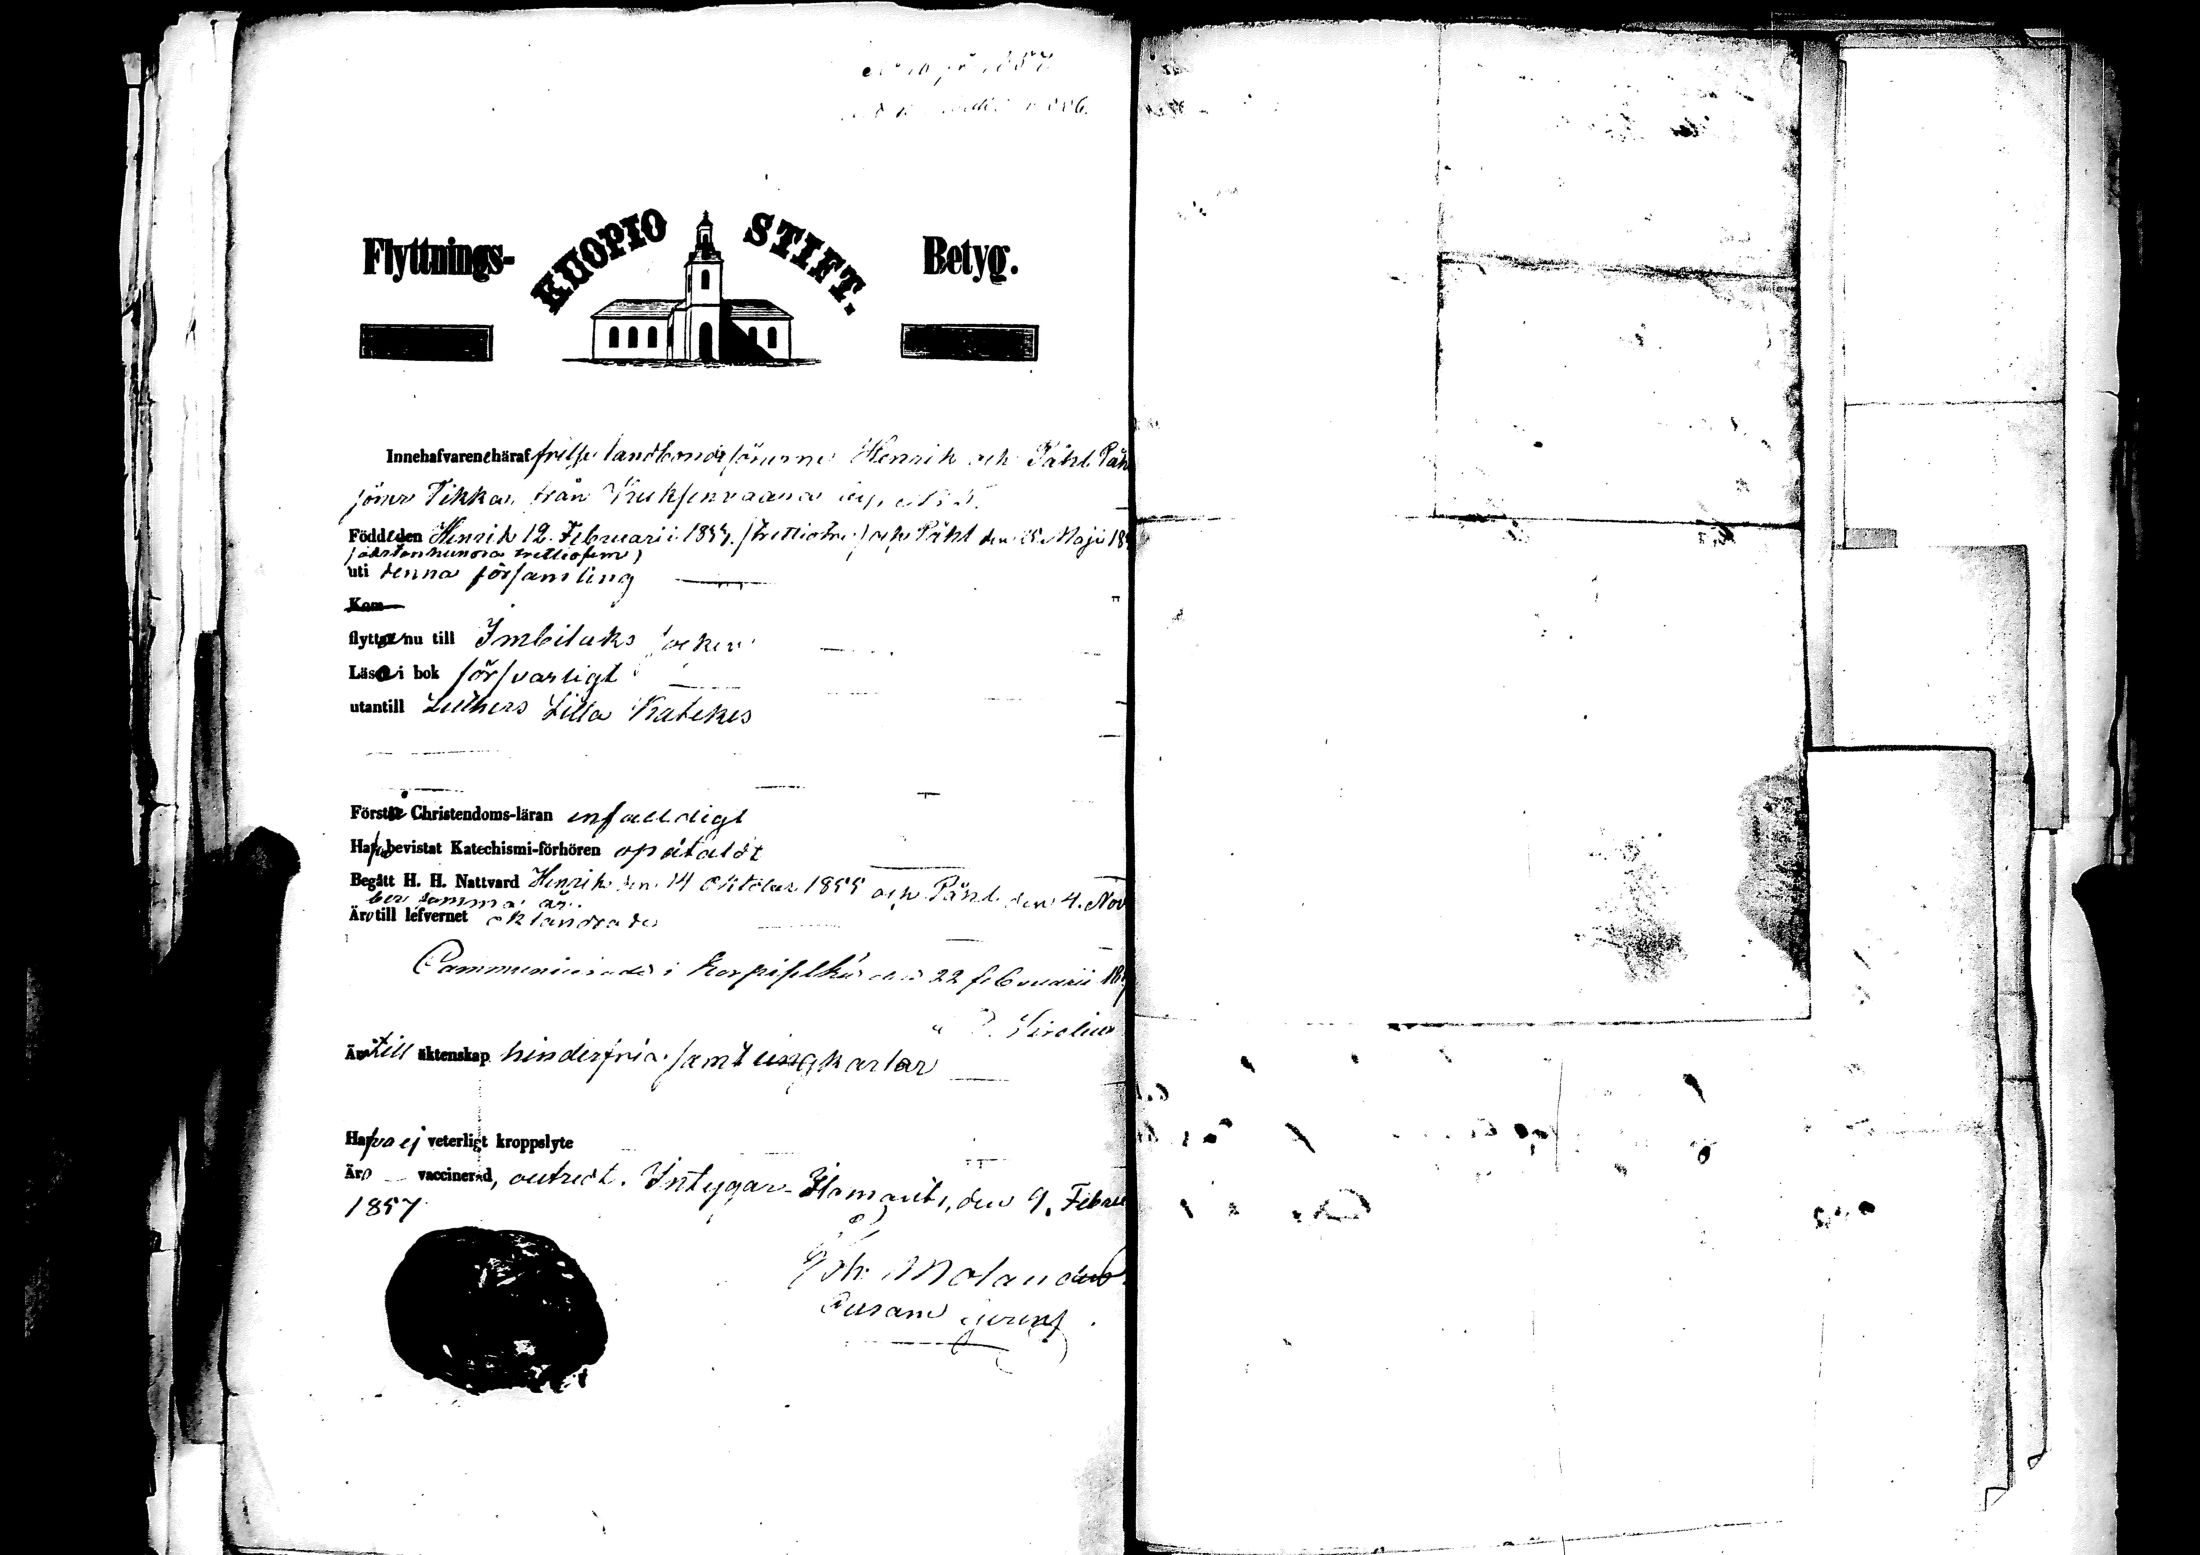 Flyttnings- KUOPIO STIFT. Betyg.
Innehafvarene häraf frelse landbondesönerne Henrik och Påhl Påhls
söner Tikka, från Kuuksenvaara
Födde den Henrik 12 Februarii 1833 (trettiotre) och Påhl den 25 Maji 18
(adertonhundra trettiofem)
uti denna församling
Kom
flytta nu till Imbilaks socken
Läsa i bok försvarligt
utantill Luthers Lilla Katekes
Förstå Christendoms-läran enfaldigt
Hafva bevistat Katechismi-förhören opåtaldt
Begått H. H. Nattvard Henrik den 14 Oktober 1855 och Påhl den 4. Novem
ber samma år.
Äro till lefvernet oklandrade
Communicerade i Korpiselkä den 22 februarii 18
Sirelius
Äro till äktenskap hinderfria samt ungkarlar
Hafva ej veterligt kroppslyte
Äro vaccinerad, Intygar Ilomants, den 9. Febru
1857
Joh. Molander